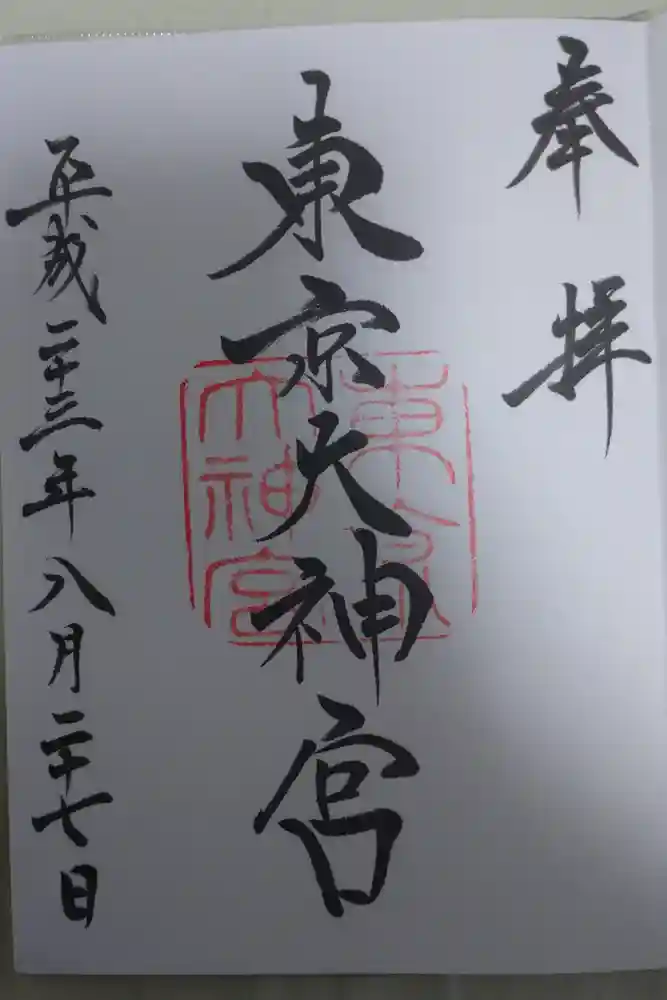 奉拝
東京大神宮
平成二十三年八月二十七日
東京
大神宮